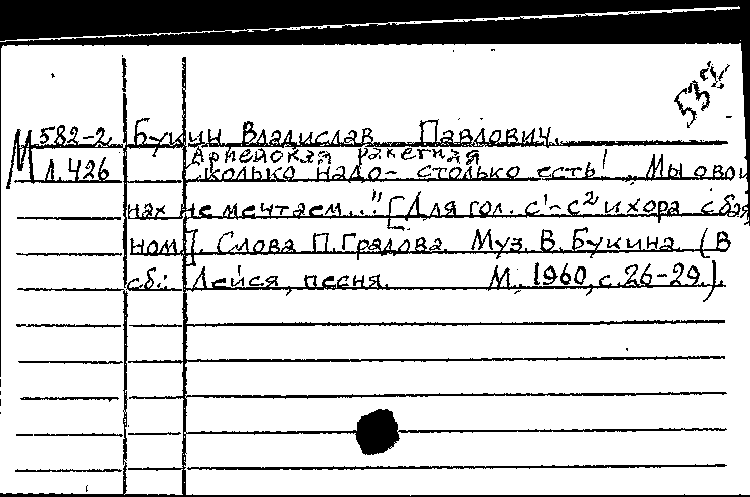 537
М 582-2 Букин Владислав Павлович.
Армейская ракетная
Л.426 Сколько надо - столько есть! „Мы о вой
нах не мечтаем..." [Для гол. c¹-c² и хора с бая
ном]. Слова П.Градова. Муз. В.Букина. (В
сб.: Лейся, песня. М., 1960, с.26-29.).